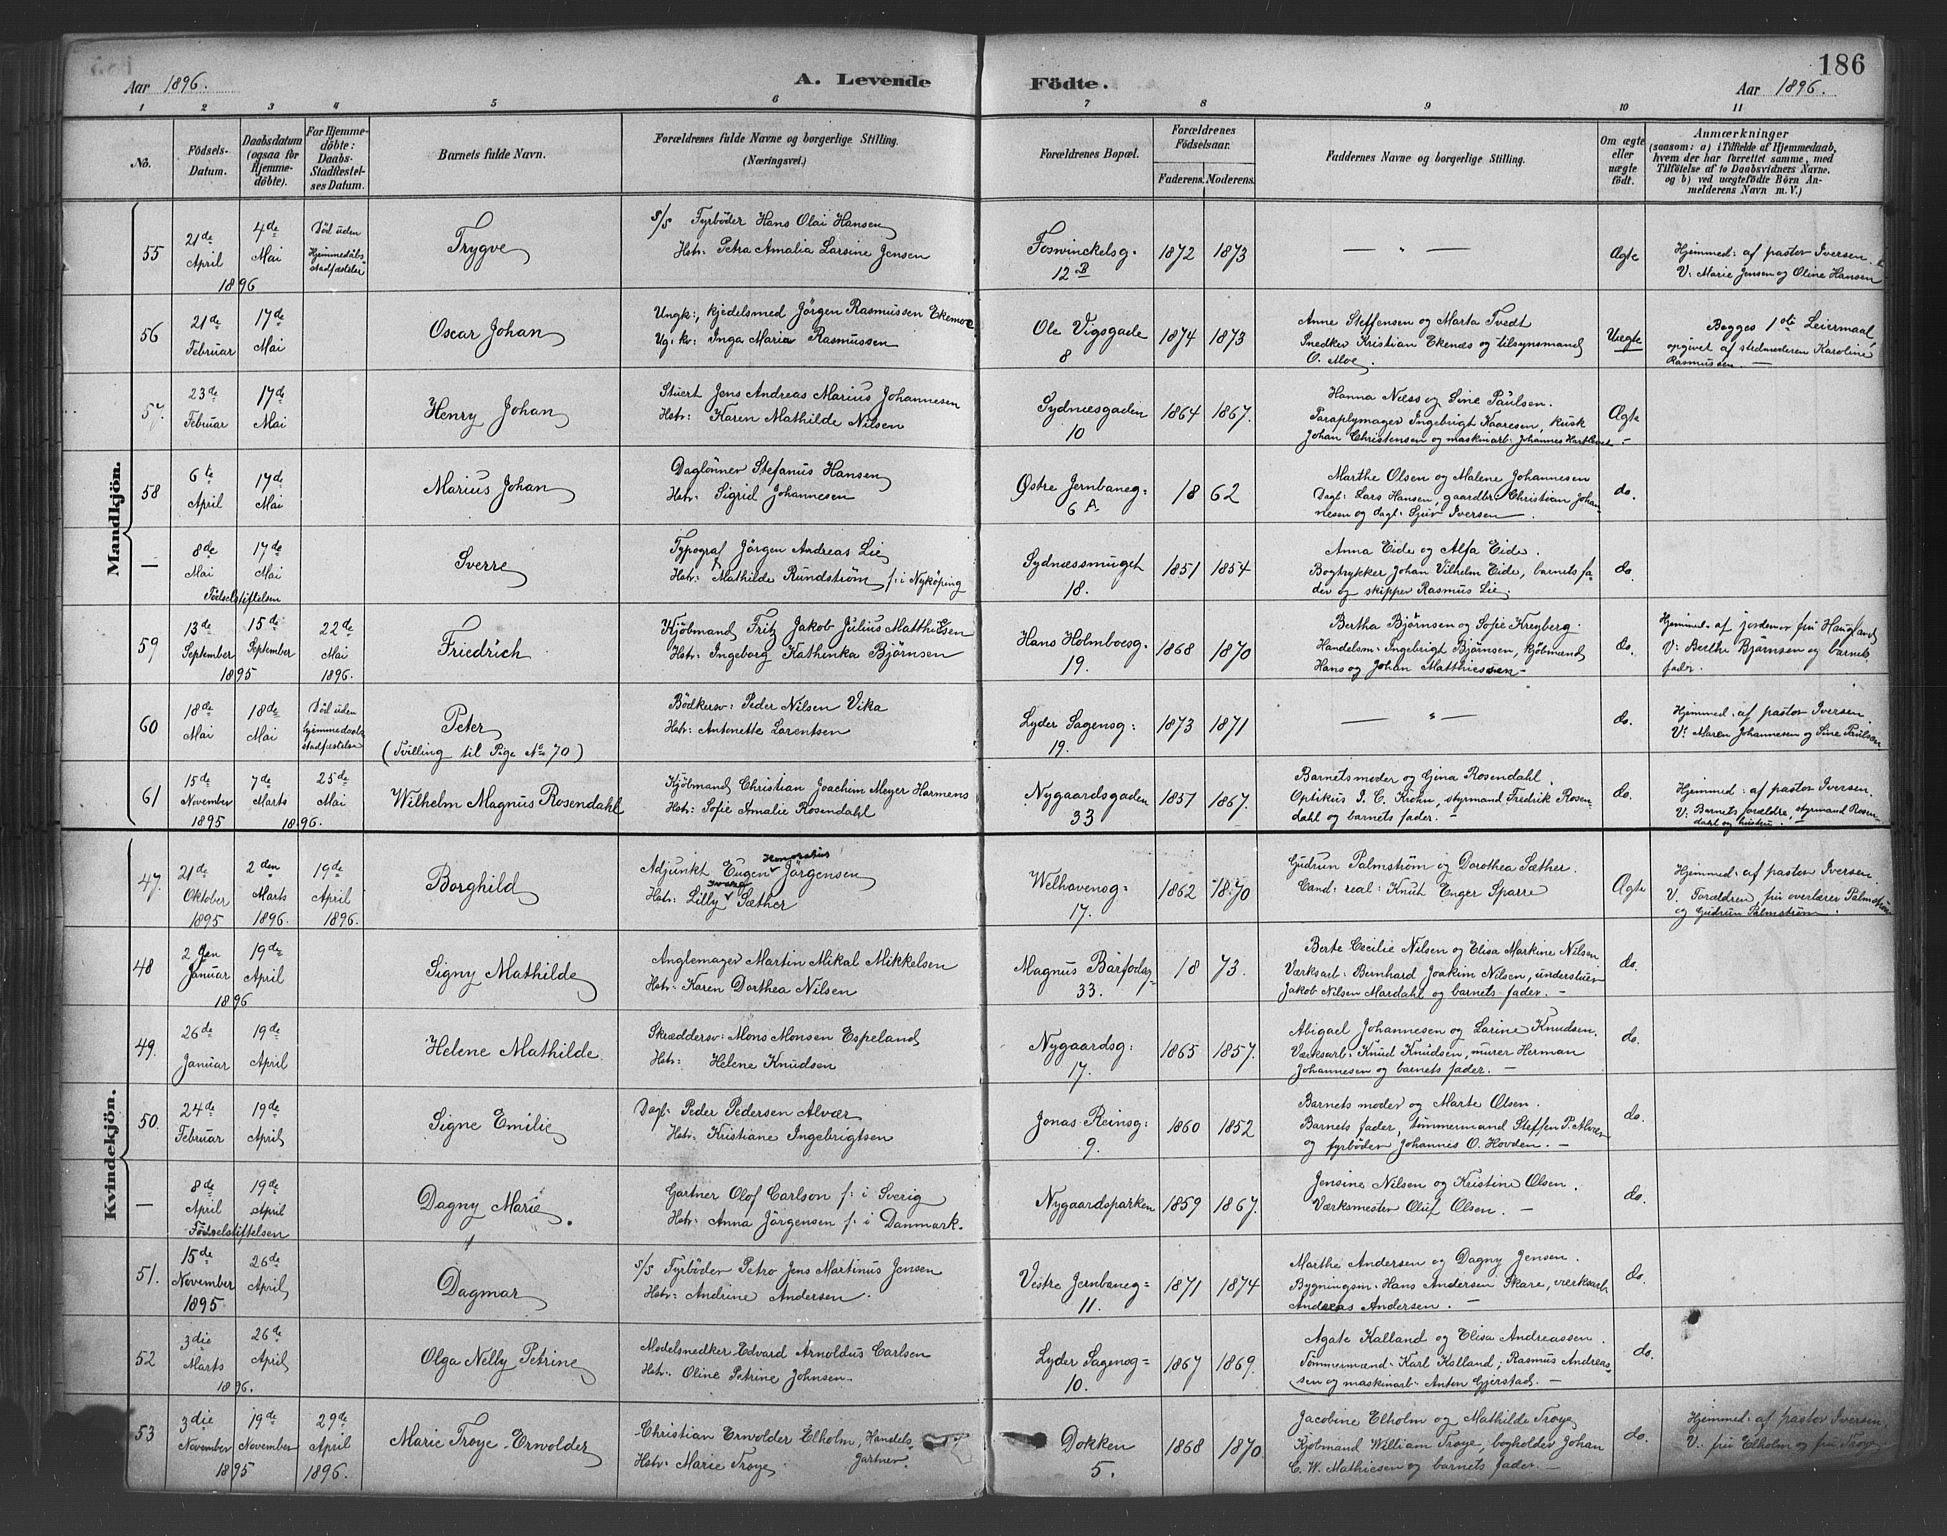 186
Aar 1896. A. Levende Födte. Aar 1896.
1 2 3 4 5 6 7 8 9 10 11
No. Födsels-Datum. Daabsdatum (ogsaa for Hjemme-döbte). For Hjemme-döbte: Daabs-Stadfæstel-ses Datum. Barnets fulde Navn. Forældrenes fulde Navne og borgerlige Stilling. (Næringsvei.) Forældrenes Bopæl. Forældrenes Födselsaar. Faderens. Moderens. Faddernes Navne og borgerlige Stilling. Om ægte eller uægte födt. Anmærkninger (saasom: a) i Tilfælde af Hjemmedaab, hvem der har forrettet samme, med Tilföielse af to Daabsvidners Navne. og b) ved uægtefödte Börn An-melderens Navn m. V.)
Mandkjön.
55 21de April 1896 4de Mai Död uden Hjemmedåbs stadfæstelse
Trygve
s/s Fyrböder Hans Olai Hansen
Hstr: Petra Amalia Larsine Jensen
Foswinckelsg. 12 B 1872 1873 — " —
Ægte
Hjemmed: af pastor Iversen.
V: Marie Jensen og Oline Hansen
56 21de Februar 17de Mai
Oscar Johan
Ungk:, kjedelsmed Jörgen Rasmussen Ekemoe
Ug: kv: Inga Maria Rasmussen
Ole Vigsgade 8 1874 1873
Anne Steffensen og Marta Tvedt
Snedker Kristian Ekenæs og tilsynsmand
O. Moe.
Uægte
Begges 1ste Leiermaal
opgivet af stedmoderen Karoline
Rasmussen. —
57. 23de Februar 17de Mai
Henry Johan
Stuert Jens Andreas Marius Johannesen
Hstr: Karen Mathilde Nilsen
Sydnæsgaden 10 1864 1867.
Hanna Næss og Sine Paulsen.
Paraplymager Ingebrigt Kaaresen, kusk
Johan Christensen og maskinarb: Johannes
Ægte —
58 6te April 17de Mai
Marius Johan
Daglönner Stefanus Hansen
Hstr: Sigrid Johannesen
Østre Jernbaneg: 6 A. 18 62
Marthe Olsen og Malene Johannesen
Dagl: Lars Hansen, gaardbr: Christian Johan-
nesen og dagl: Sjur Iversen —
do.
— 8de Mai 17de Mai Födselstiftelsen
Sverre
Typograf Jörgen Andreas Lie
Hstr: Mathilde Rundström f: i Nyköping
Sydnæssmuget 18. 1851 1854
Anna Eide og Alfa Eide.
Bogtrykker Johan Vilhelm Eide, barnets fa-
der og skipper Rasmus Lie.
do.
59 13de September 1895 15de September 22de Mai 1896.
Friedrich
Kjöbmand Fritz Jakob Julius Matthiesen
Hstr: Ingeborg Kathinka Björnsen
Hans Holmboesg. 19. 1868 1870
Bertha Björnsen og Sofie Kreyberg.
Handelsm: Ingebrigt Björnsen, kjöbmand
Hans og Johan Matthiesen —
do.
Hjemmed: af jordemor fru Haugland
V: Berthe Björnsen og barnets
fader.
60 18de Mai 18de Mai Död uden hjemmedaabs stadfæstelse
Peter
(Tvilling til Pige No 70)
Bödkersv: Peder Nilsen Vika
Hstr: Antonette Larentsen
Lyder Sagensg: 19. 1873 1871 — " —
do.
Hjemmed: af pastor Iversen.
V: Maren Johannesen og Sine Paulsen
61 15de November 1895 7de Marts 1896. 25de Mai
Wilhelm Magnus Rosendahl
Kjöbmand Christian Joachim Meyer Harmens
Hstr: Sofie Amalie Rosendahl
Nygaardsgaden 33 1857 1867.
Barnets moder og Gina Rosendahl.
Optikus I. C. Krohn, styrmand Fredrik Rosen-
dahl og barnets fader. —
do.
Hjemmed: af pastor Iversen.
V: Barnets forældre, styrmand Rosen-
dahl og hustru. —
Kvindekjön.
47. 21de Oktober 1895 2den Marts 1896. 19de April 1896.
Borghild
Adjunkt Eugen Honoratus Jörgensen
Hstr: Lilly Sæther
Welhavensg. 17. 1862 1870
Gudrun Palmström og Dorothea Sæther.
Cand: real: Knut Enger Sparre
Ægte
Hjemmed: af pastor Iversen.
V. Forældren, fru overlærer Palmström
og Gudrun Palmström.
48 2den Januar 1896 19de April
Signy Mathilde
Anglemager Martin Mikal Mikkelsen
Hstr: Karen Dorthea Nilsen
Magnus Barfodsg 33. 18 73.
Berte Cecilie Nilsen og Elisa Markine Nilsen
Værksarb: Bernhard Joakim Nilsen, understuer
Jakob Nilsen Mardahl og barnets fader. —
do.
49. 26de Januar 19de April
Helene Mathilde.
Skræddersv: Mons Monsen Espeland
Hstr: Helene Knudsen
Nygaardsg: 17. 1865 1857.
Abigael Johannesen og Larine Knudsen.
Værksarb: Knud Knudsen, murer Herman
Johannesen og barnets fader. —
do.
50. 24de Februar 19de April
Signe Emilie
Dagl: Peder Pedersen Alvær
Hstr: Kristiane Ingebrigtsen
Jonas Reinsg: 9. 1860 1852
Barnets moder og Marte Olsen.
Barnets fader, tömmermand Steffen P. Alvær
og fyrböder Johannes O. Hovden. —
do.
— 8de April 19de April Födselstiftelsen
Dagny Marie.
Gartner Olof Carlson f: i Sverig
Hstr: Anna Jörgensen f: i Danmark.
Nygaardsparken 1859 1867.
Jensine Nilsen og Kristine Olsen.
Værksmester Oluf Olsen. —
do.
51. 15de November 1895 26de April
Dagmar
s/s Fyrböder Petro Jens Martinus Jensen
Hstr: Andrine Andersen.
Vestre Jernbaneg= 11. 1871 1874
Marthe Andersen og Dagny Jensen.
Bygningsm: Hans Andersen Skare, værksarb.
Andreas Andersen. —
do.
52 3die Marts 1896. 26de April
Olga Nelly Petrine
Modelsnedker Edvard Arnoldus Carlsen
Hstr: Oline Petrine Johnsen.
Lyder Sagensg= 10. 1867 1869.
Agate Kalland og Elisa Andreassen.
Tömmermænd: Karl Kalland, Rasmus Andreas-
sen og maskinarb: Anton Gjerstad. —
do.
53 3die November 1895 19de November 29de April 1896.
Marie Troye Erwolder
Christian Erwolder Elholm, Handels gartner.
Hstr: Marie Troye
Dokken 5. 1868 1870.
Jacobine Elholm og Mathilde Troye
Kjöbmand William Troye, bogholder Johan
C. W. Mathiesen og barnets fader. —
do.
Hjemmed: af pastor Iversen
V. fru Elholm og fru Troye